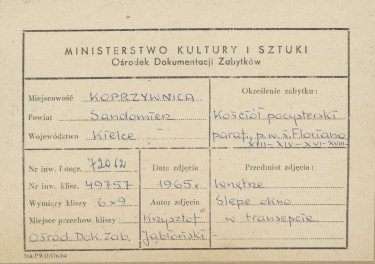 MINISTERSTWO KULTURY I SZTUKI
Ośrodek Dokumentacji Zabytków
Miejscowość KOPRZYWNICA
Powiat Sandomierz
Województwo Kielce
Określenie zabytku:
Kościół pocysterski
paraf. p.w. ś. Floriana
XIII-XIV-XVI-XVIII
Nr inw. fotogr. 72012
Nr inw. klisz. 49757
Wymiary kliszy 6x9
Miejsce przechow. kliszy
Ośrod. Dok. Zab.
Data zdjęcia
1965 r.
Autor zdjęcia
Krzysztof
Jabłoński
Przedmiot zdjęcia:
Wnętrze
Ślepe okno
w transepcie